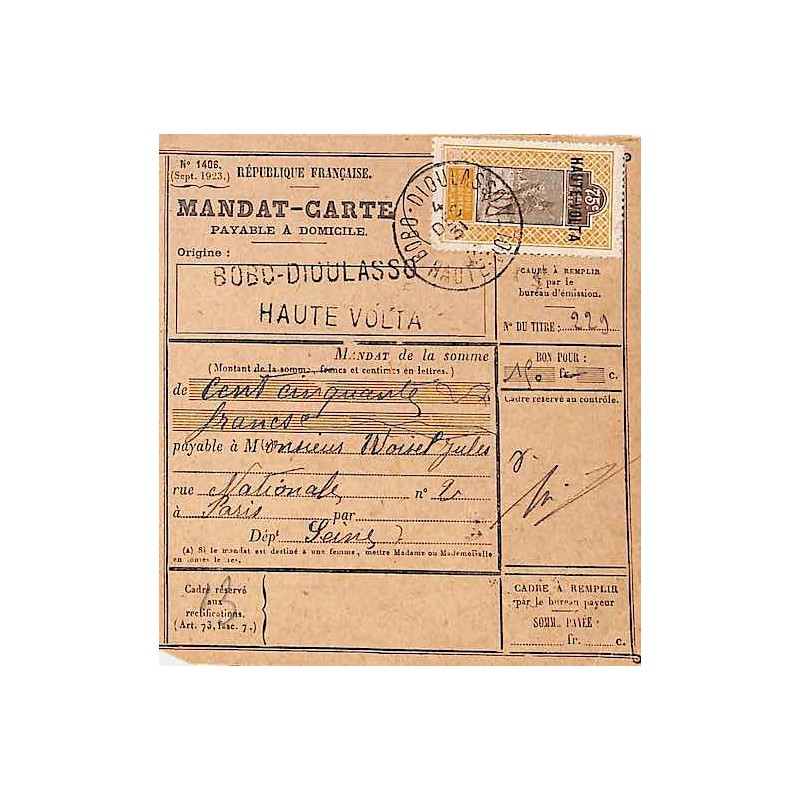 N° 1406.
(Sept. 1923.)
RÉPUBLIQUE FRANÇAISE.
MANDAT-CARTE
PAYABLE À DOMICILE.
Origine :
BOBO-DIOULASSO
HAUTE VOLTA
BOBO-DIOULASSO
HAUTE
HAUTE-VOLTA
75c
CADRE À REMPLIR
par le
bureau d'émission.
N° DU TITRE : 229
MANDAT de la somme
(Montant de la somme, francs et centimes en lettres.)
de cent cinquante
francs
payable à Monsieur Woisel Jules
rue Nationale n° 2
à Paris par
Dépt Seine
(A) Si le mandat est destiné à une femme, mettre Madame ou Mademoiselle
en toutes lettres.
BON POUR :
150 fr c.
Cadre réservé au contrôle.
Cadre réservé
aux
rectifications.
(Art. 73, fasc. 7.)
CADRE À REMPLIR
par le bureau payeur
SOMME PAYÉE :
fr. c.